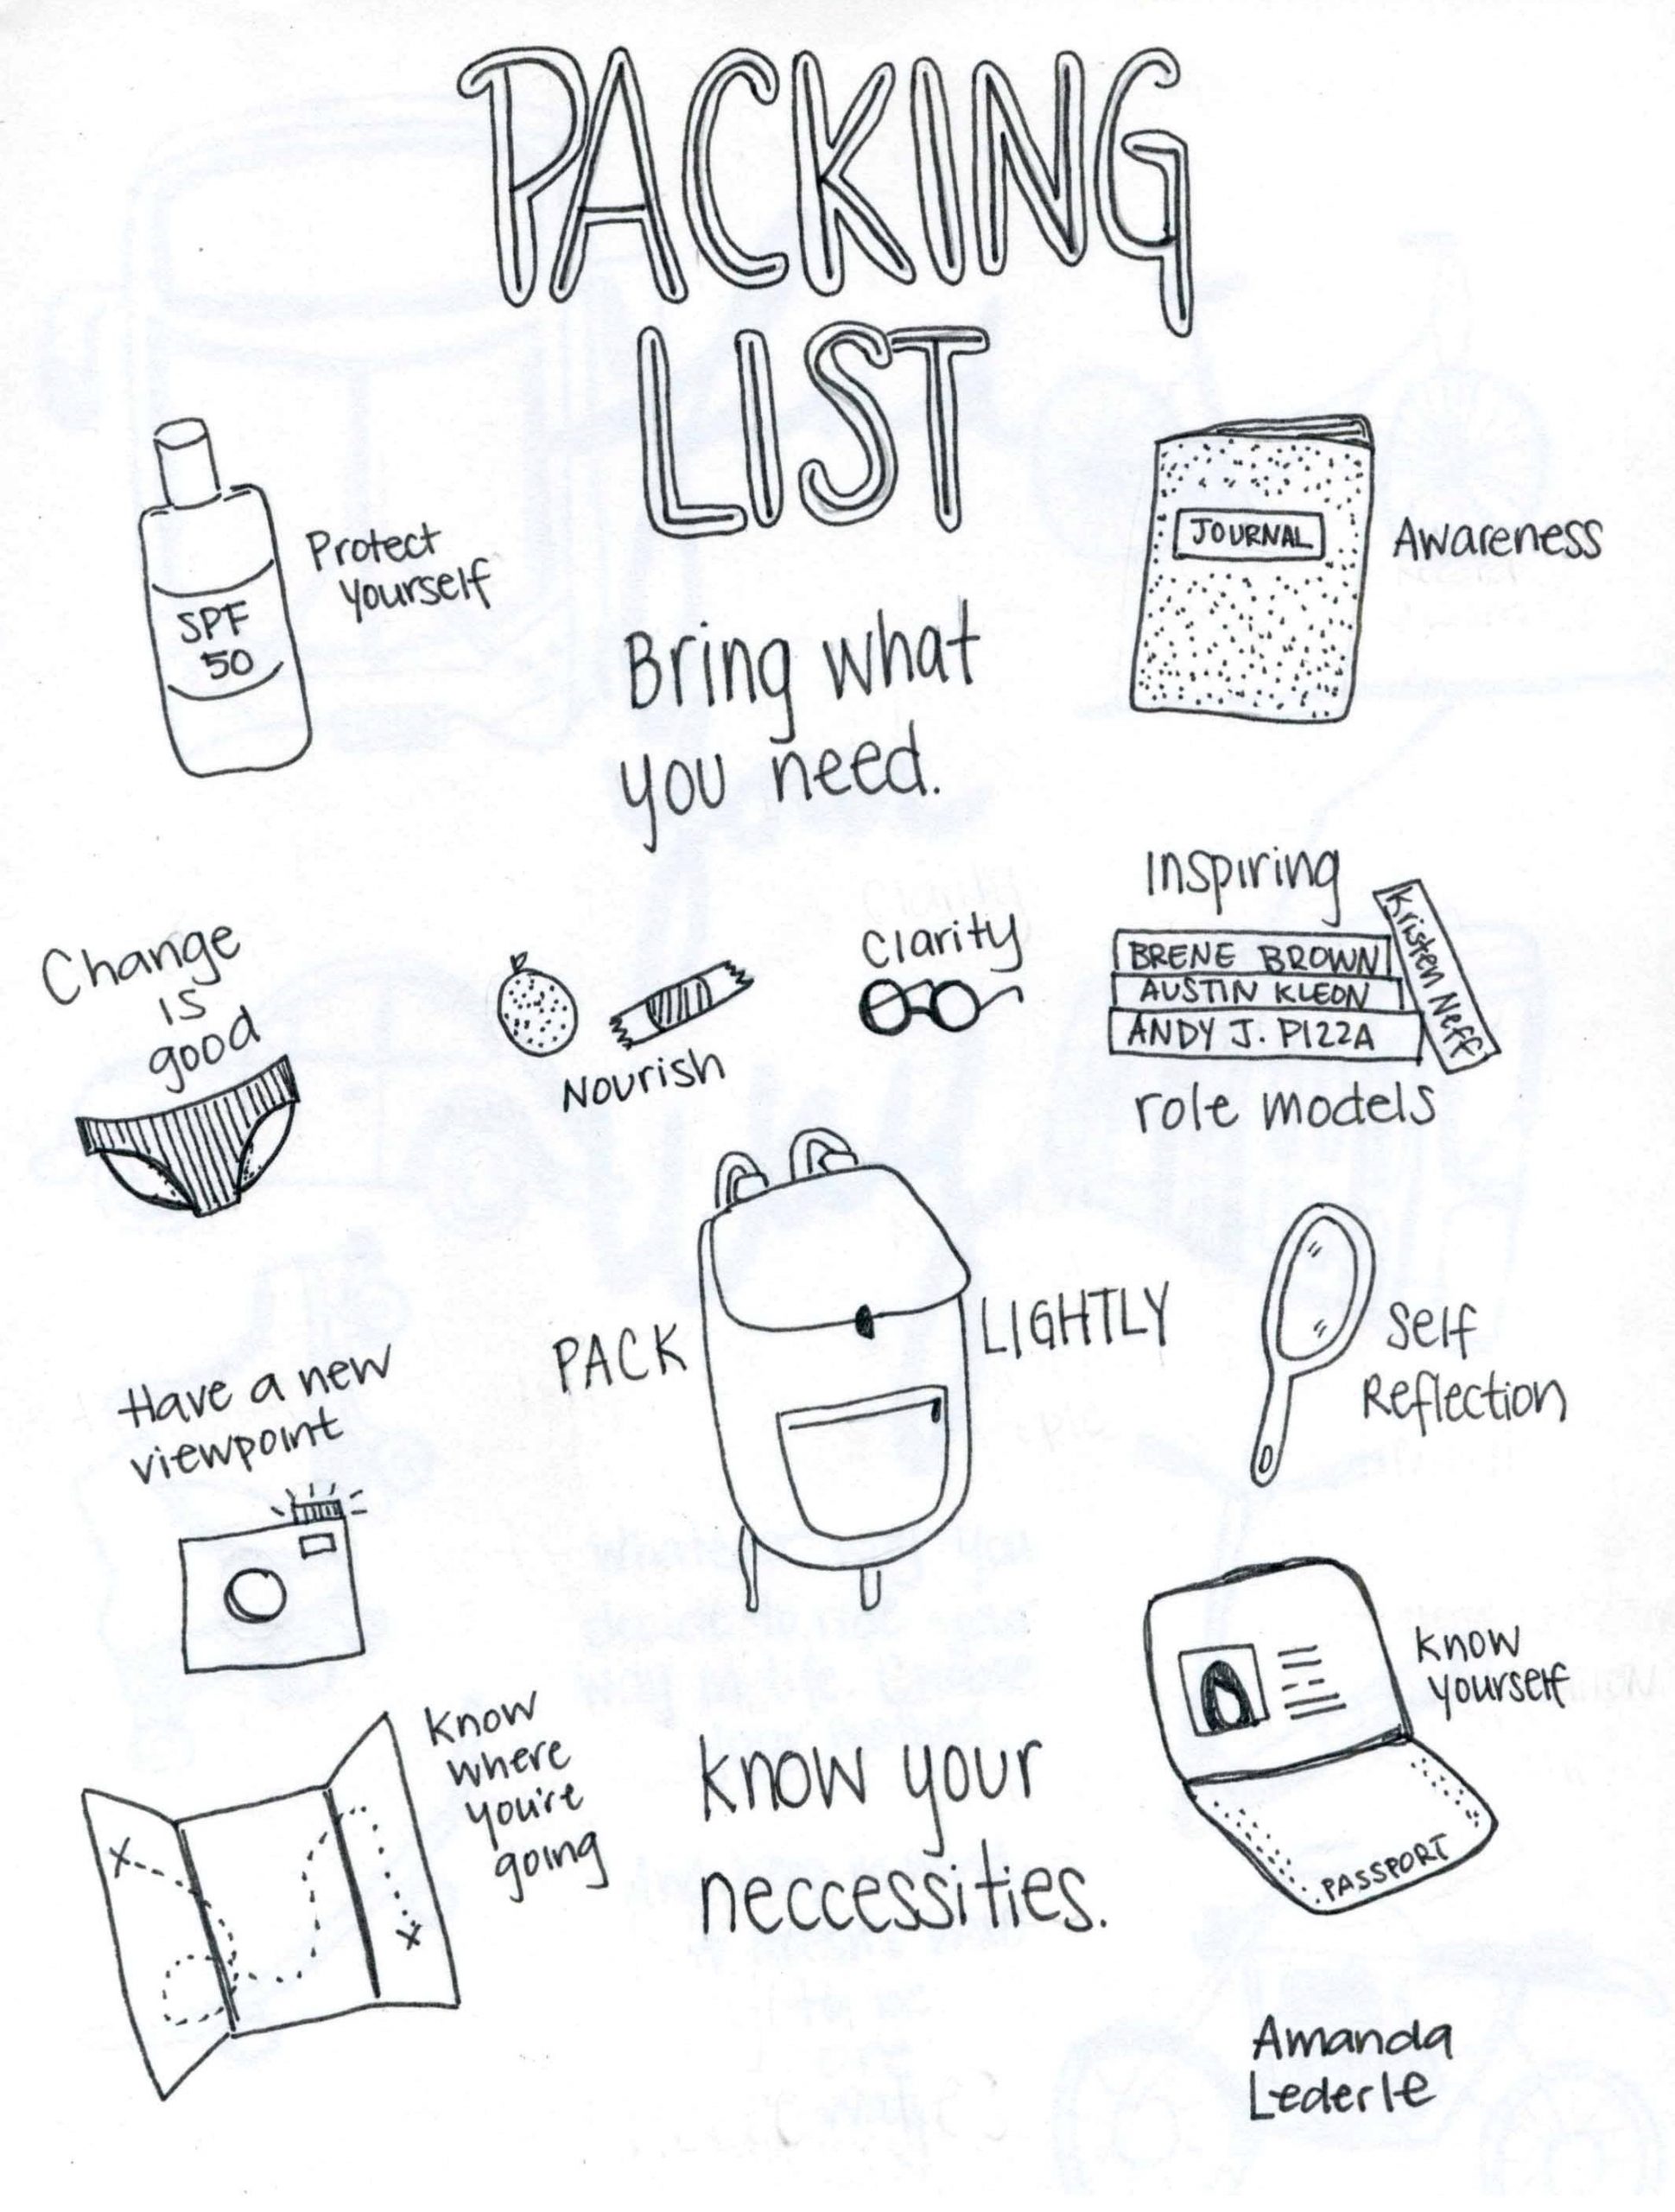 PACKING
LIST
Protect
yourself
SPF
50
JOURNAL
Awareness
Bring what
you need.
Change
is
good
Nourish
Clarity
Inspiring
BRENE BROWN
AUSTIN KLEON
ANDY J. PIZZA
Kristen Neff
role models
PACK
LIGHTLY
Self
Reflection
Have a new
viewpoint
Know
where
you're
going
know your
neccessities.
Know
yourself
PASSPORT
Amanda
Lederle